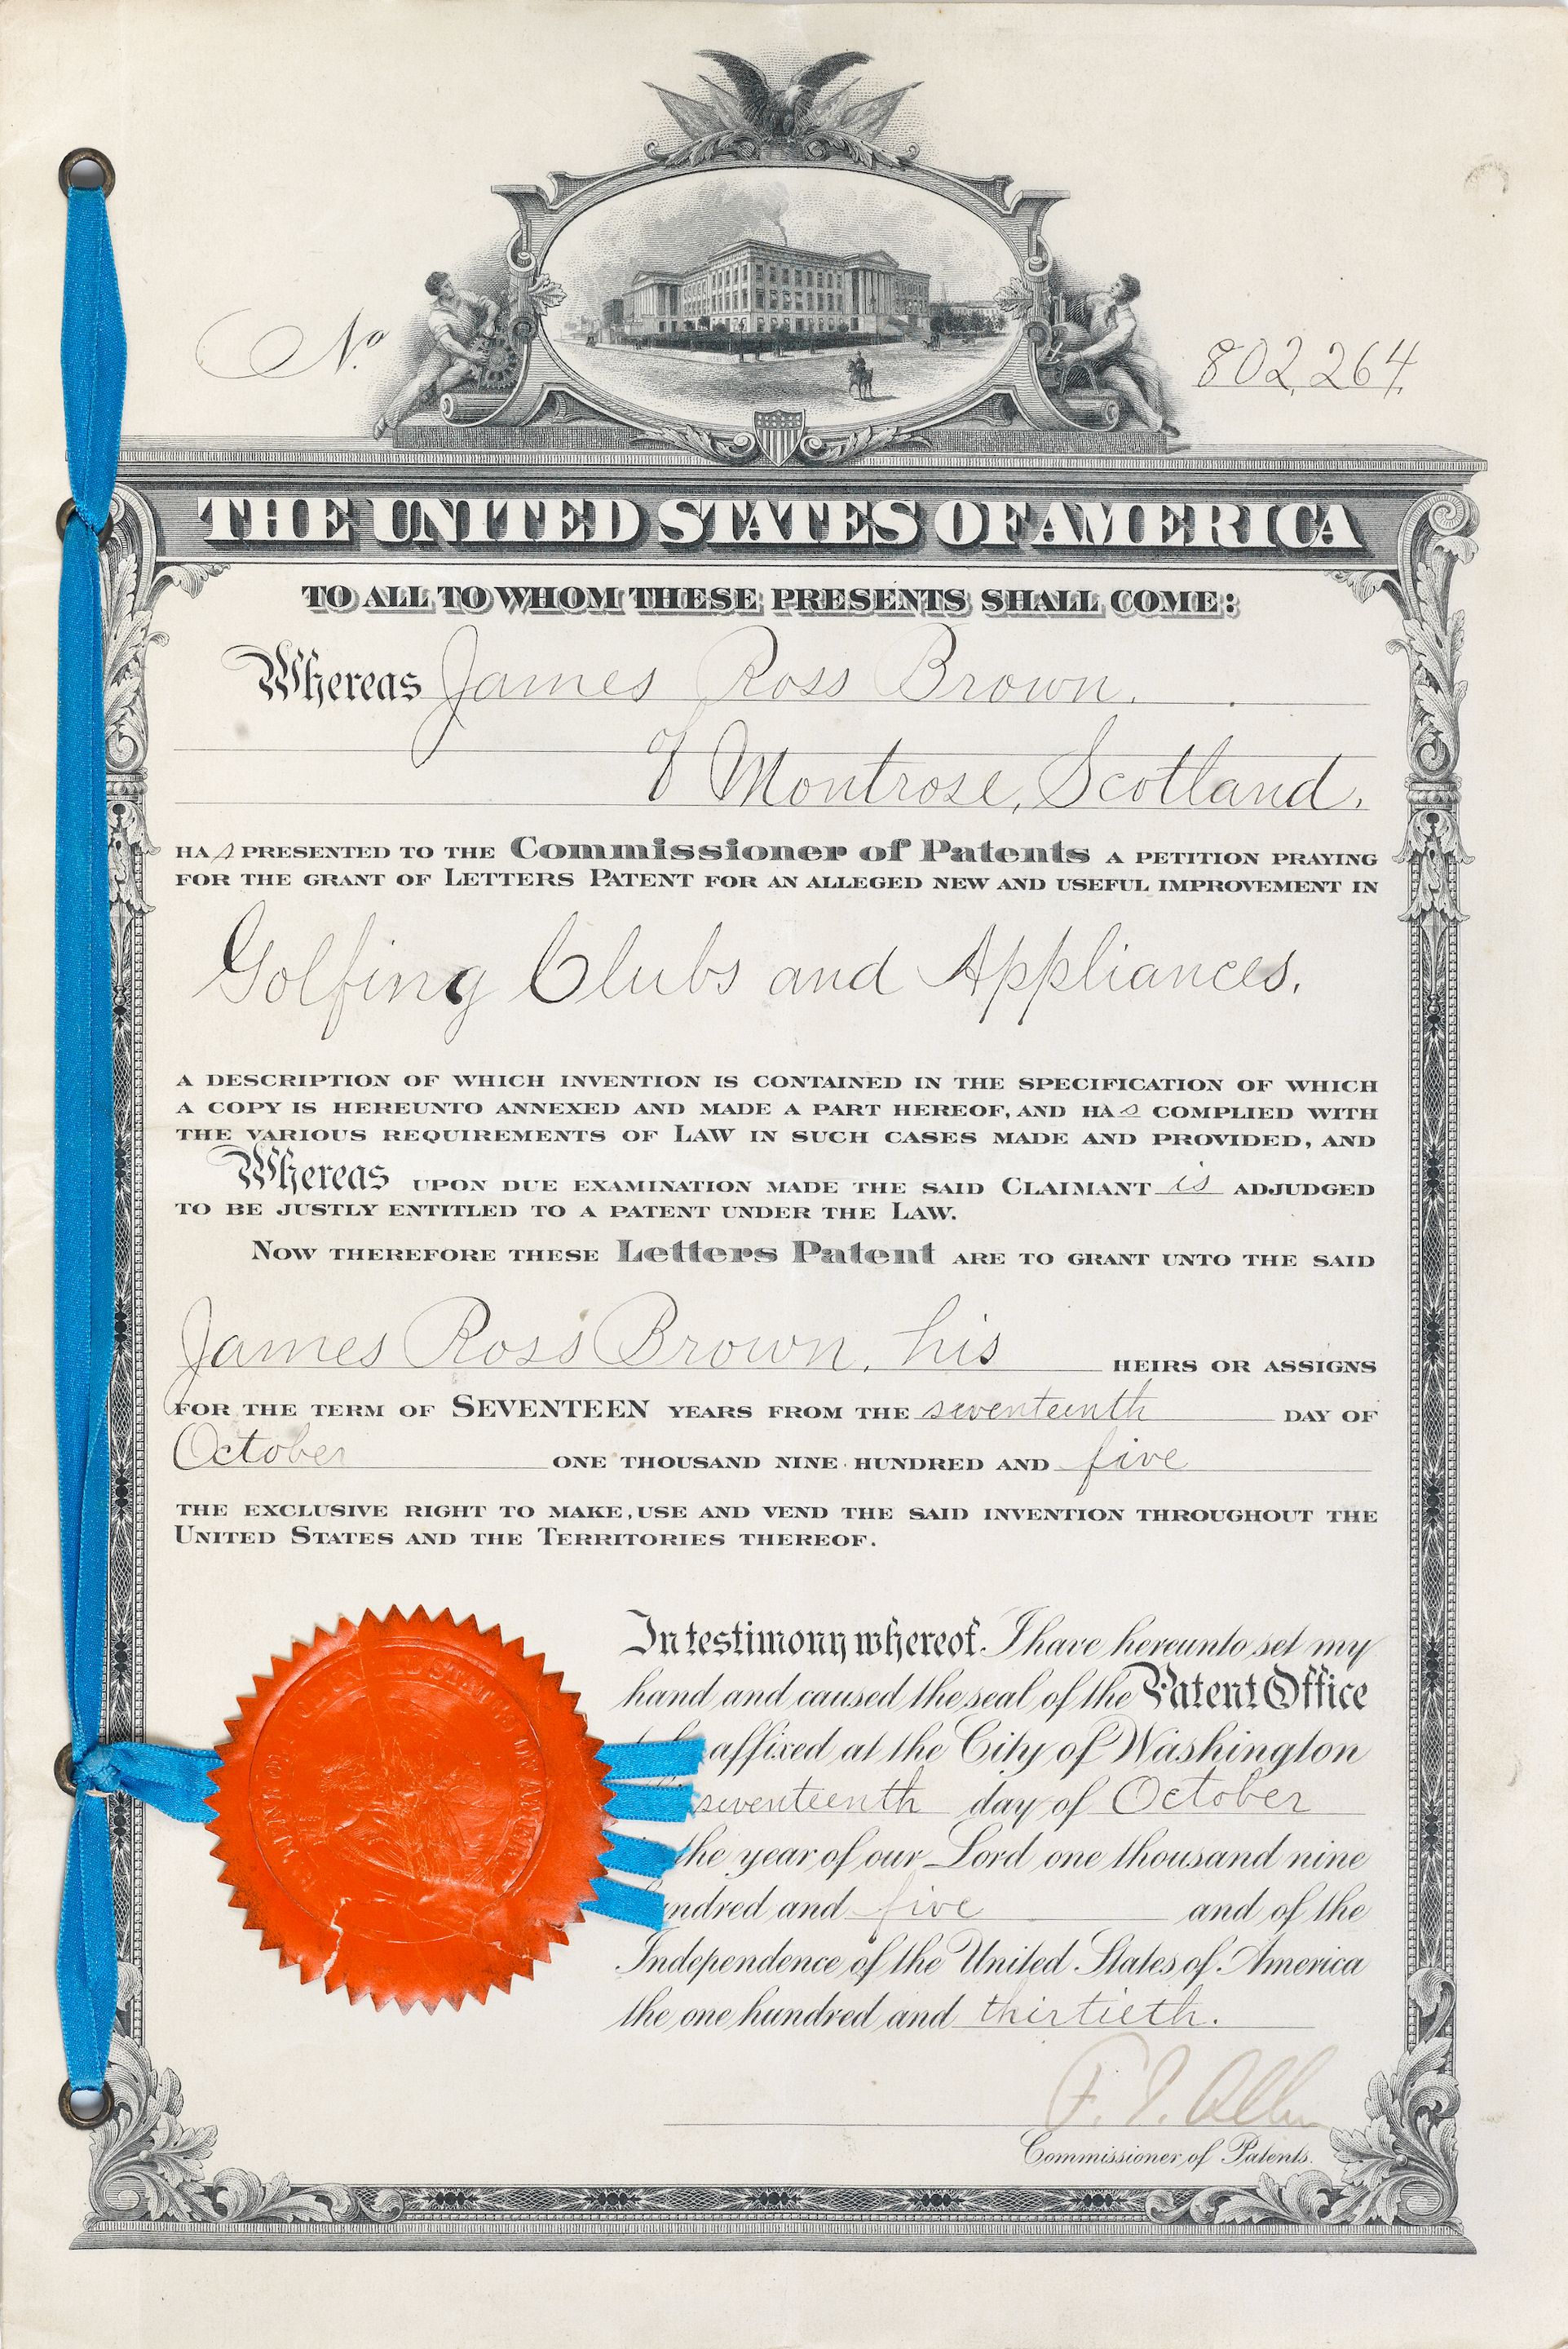 No. 802,264.
THE UNITED STATES OF AMERICA
TO ALL TO WHOM THESE PRESENTS SHALL COME:
Whereas James Ross Brown,
of Montrose, Scotland,
HAS PRESENTED TO THE Commissioner of Patents A PETITION PRAYING
FOR THE GRANT OF LETTERS PATENT FOR AN ALLEGED NEW AND USEFUL IMPROVEMENT IN
Golfing Clubs and Appliances,
A DESCRIPTION OF WHICH INVENTION IS CONTAINED IN THE SPECIFICATION OF WHICH
A COPY IS HEREUNTO ANNEXED AND MADE A PART HEREOF, AND HAS COMPLIED WITH
THE VARIOUS REQUIREMENTS OF LAW IN SUCH CASES MADE AND PROVIDED, AND
Whereas UPON DUE EXAMINATION MADE THE SAID CLAIMANT is ADJUDGED
TO BE JUSTLY ENTITLED TO A PATENT UNDER THE LAW.
NOW THEREFORE THESE Letters Patent ARE TO GRANT UNTO THE SAID
James Ross Brown, his HEIRS OR ASSIGNS
FOR THE TERM OF SEVENTEEN YEARS FROM THE seventeenth DAY OF
October ONE THOUSAND NINE HUNDRED AND five
THE EXCLUSIVE RIGHT TO MAKE, USE AND VEND THE SAID INVENTION THROUGHOUT THE
UNITED STATES AND THE TERRITORIES THEREOF.
In testimony whereof I have hereunto set my
hand and caused the seal of the Patent Office
affixed at the City of Washington
seventeenth day of October
the year of our Lord one thousand nine
undred and five and of the
Independence of the United States of America
the one hundred and thirtieth.
F. I. Allen
Commissioner of Patents.